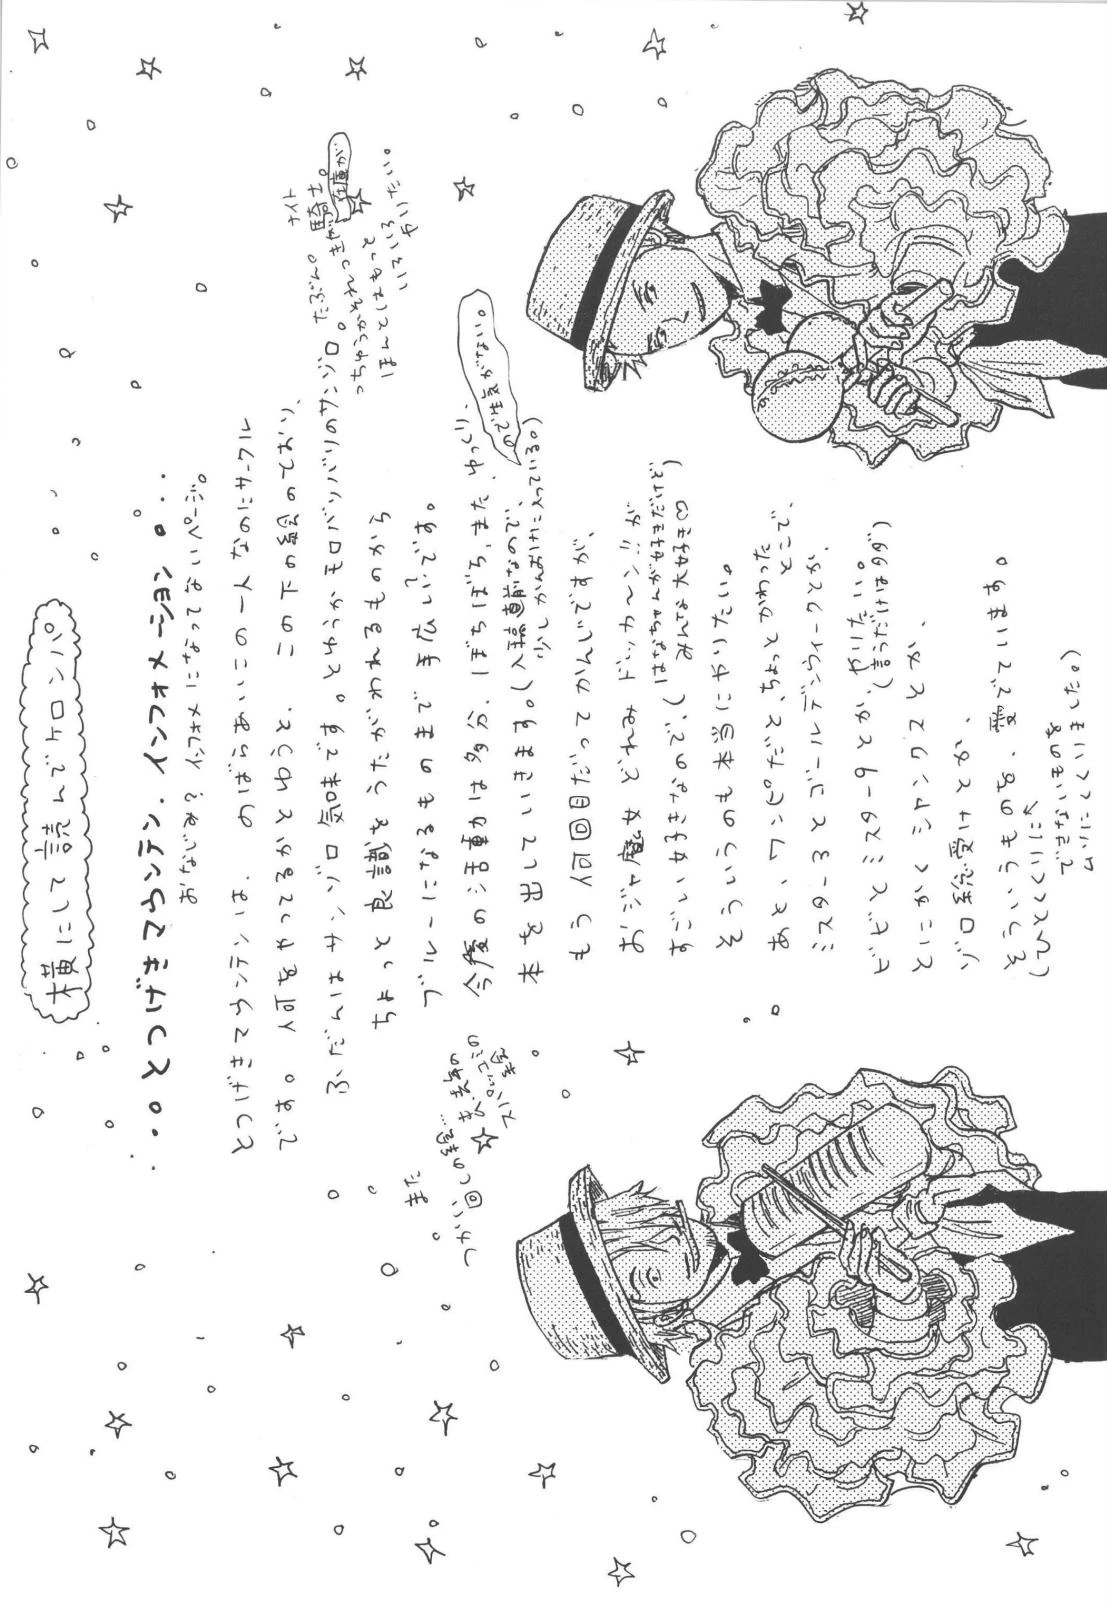 横にして読んでケロンパ
・・・とつげきマウンテン.インフォメーション・・・
おなじみ?インフォメになってないページ。
とつげきマウンテンは、のばらあいこの一人なのにサークル
です。何をやってるかとゆうと、この下の絵のており、
ふだんはサンゾロ気味です。とゆうかモロバリバリのサンゾロ。たぶん。騎士。
ナイト
在庫が
ほんでしたもって
いろいろ
かいたい。
ちょっと良識をうたがわれるものから
ブルーになるものまで手広いです。
今度の活動は多分、ぼちぼち、また、ゆっくり、
本を出していきます。(入稿直前なので、
ので生気がない。
少しかんおけに入っている。)
もう何回目だってかんじですが、
おジャ魔女どれみ ドッカ〜ン!!が
すごい好きなので、(
そういうのも本当にやりたい。
あと、ワンピだと、ちょっとかわった
とこで、
ミスター3とゴールデンウィークとか、
ビビとミスター6とか、(言うだけは66)
やりたい。
とにかくシャンクスとか、
ゾロ総受けとか、
そういうもの、愛でています。
(ひとくくりに
しました。)
また
つかい回しの豪…